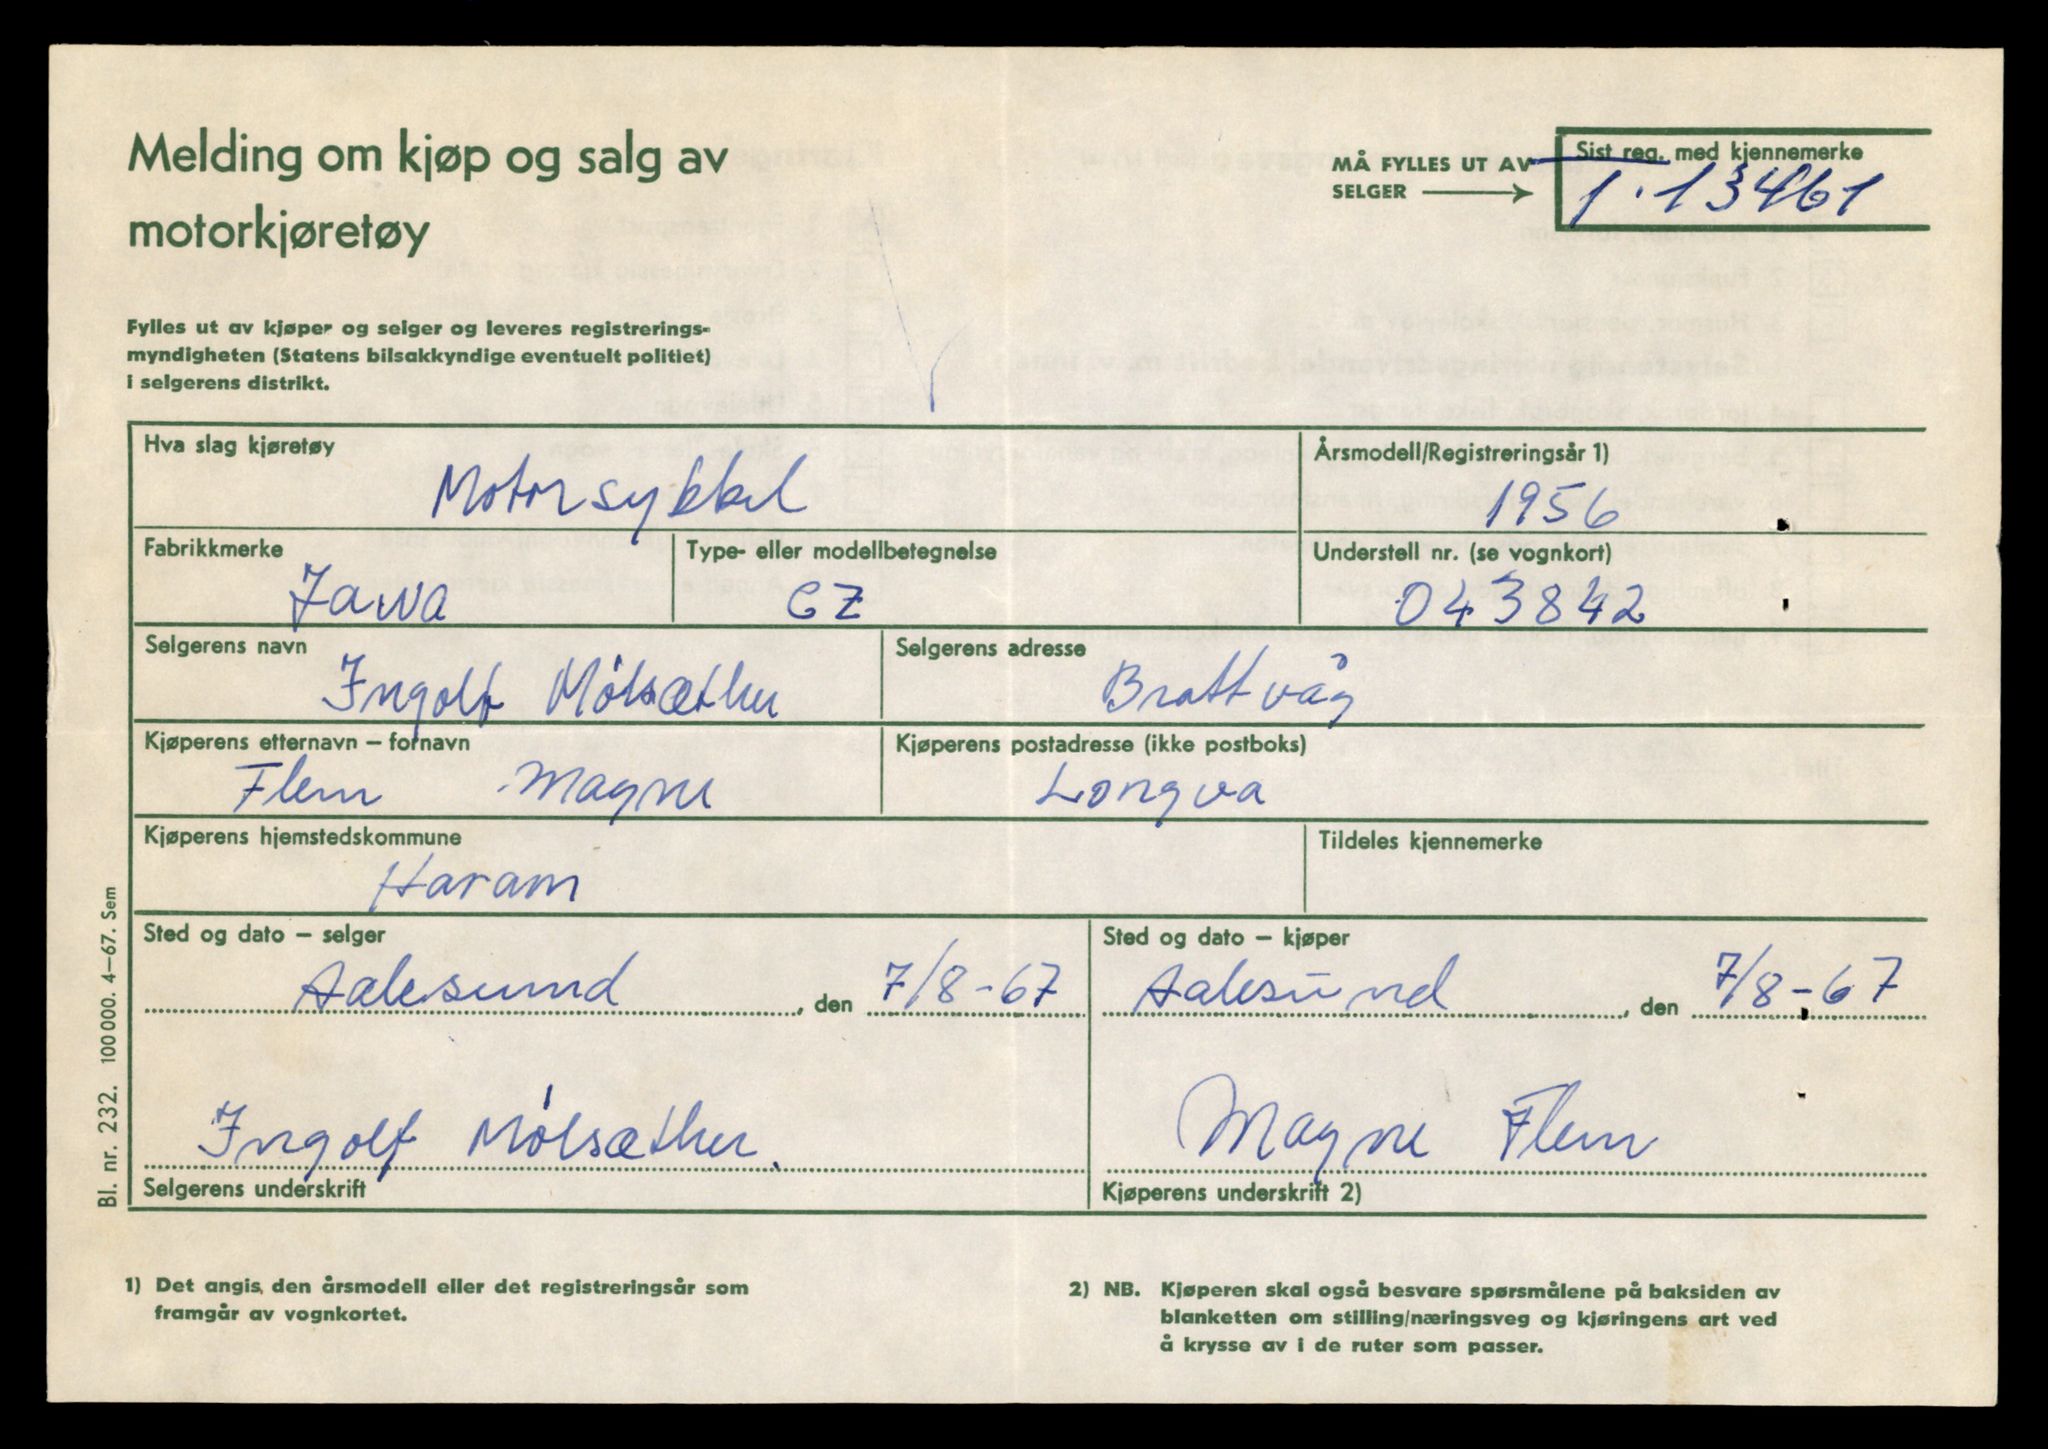 Melding om kjøp og salg av
motorkjøretøy
MÅ FYLLES UT AV
SELGER
Sist reg. med kjennemerke
T-13461
Fylles ut av kjøper og selger og leveres registrerings-
myndigheten (Statens bilsakkyndige eventuelt politiet)
i selgerens distrikt.
Hva slag kjøretøy
Motorsykkel
Årsmodell/Registreringsår 1)
1956
Fabrikkmerke
Jawa
Type- eller modellbetegnelse
CZ
Understell nr. (se vognkort)
043842
Selgerens navn
Ingolf Mølsæther
Selgerens adresse
Brattvåg
Kjøperens etternavn – fornavn
Flem Magne
Kjøperens postadresse (ikke postboks)
Longva
Kjøperens hjemstedskommune
Haram
Tildeles kjennemerke
Sted og dato – selger
Aalesund, den 7/8-67
Sted og dato – kjøper
Aalesund, den 7/8-67
Ingolf Mølsæther.
Selgerens underskrift
Magne Flem
Kjøperens underskrift 2)
Bl. nr. 232. 100 000. 4–67. Sem
1) Det angis den årsmodell eller det registreringsår som
framgår av vognkortet.
2) NB. Kjøperen skal også besvare spørsmålene på baksiden av
blanketten om stilling/næringsveg og kjøringens art ved
å krysse av i de ruter som passer.